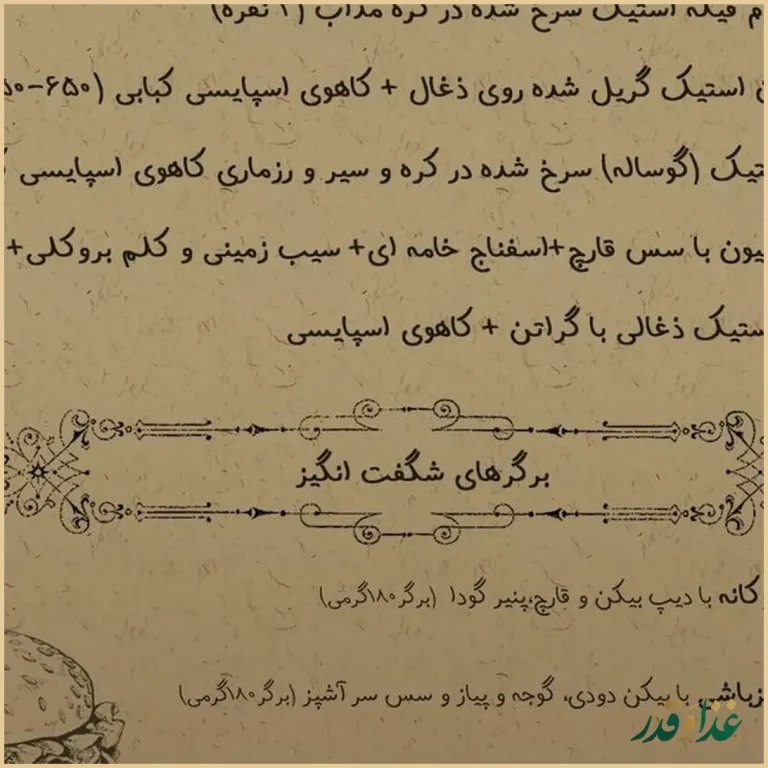 م فیله استیک سرخ شده در کره مذاب (۲ نفره)
استیک گریل شده روی ذغال + کاهوی اسپایسی کبابی (۶۵۰-
تیک (گوساله) سرخ شده در کره و سیر و رزماری کاهوی اسپایسی
یون با سس قارچ+اسفناج خامه ای+ سیب زمینی و کلم بروکلی+
ستیک ذغالی با گراتن + کاهوی اسپایسی
برگرهای شگفت انگیز
کانه با دیپ بیکن و قارچ،پنیر گودا (برگر۱۸۰گرمی)
زباشی با بیکن دودی، گوجه و پیاز و سس سر آشپز (برگر۱۸۰گرمی)